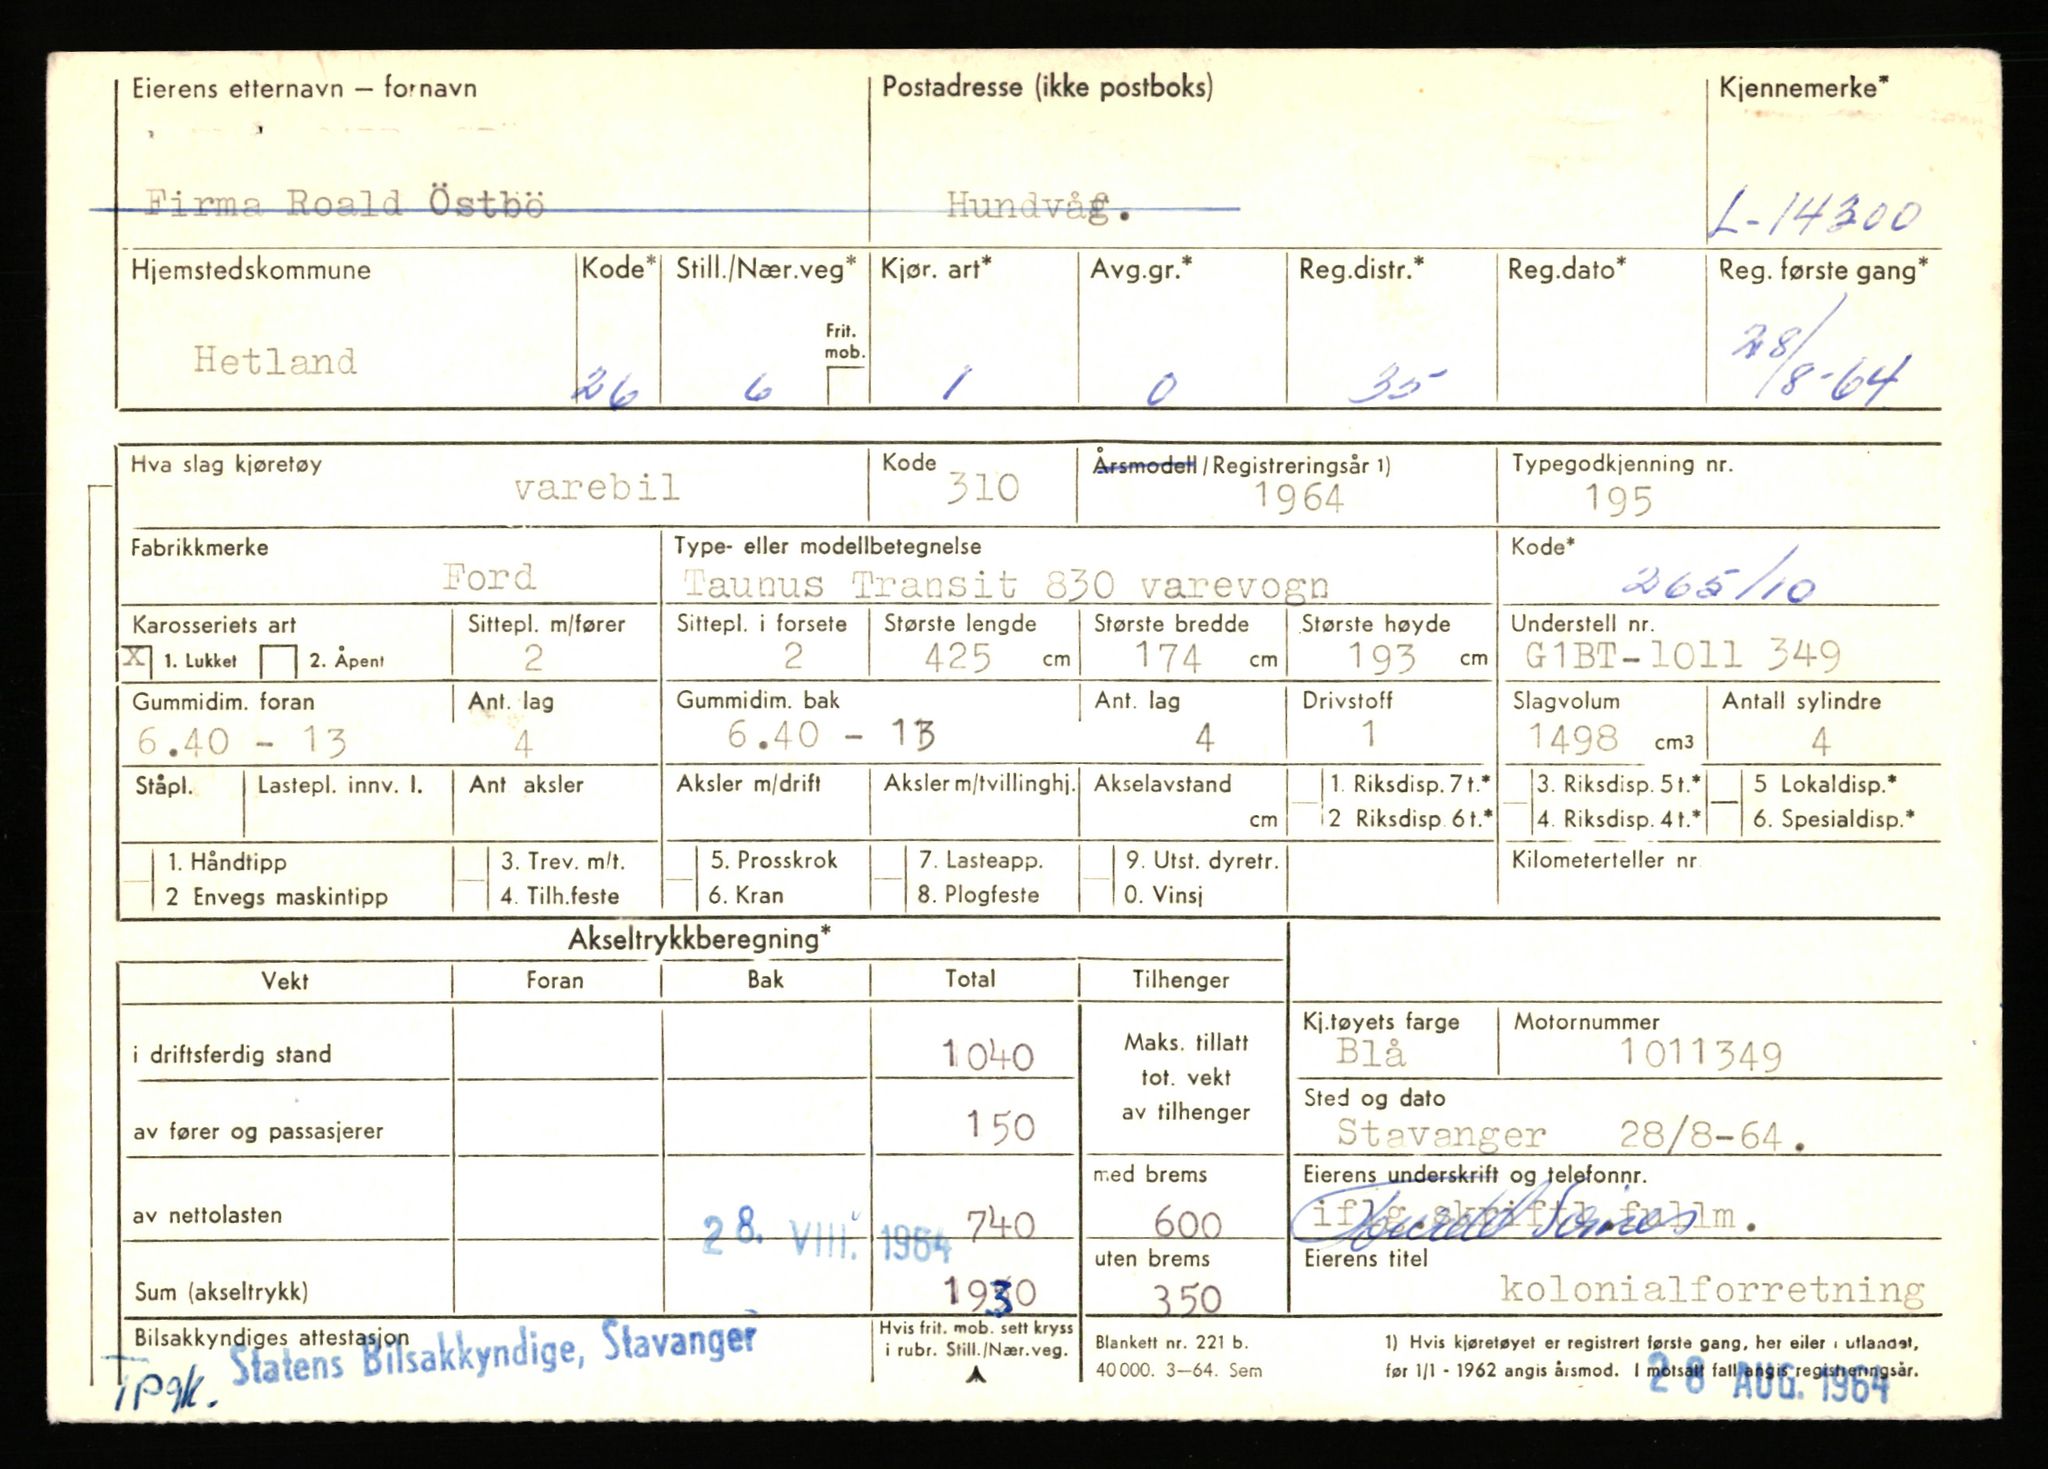 Eierens etternavn – fornavn Postadresse (ikke postboks) Kjennemerke*
Firma Roald Östbö Hundvåg. L-14300
Hjemstedskommune Kode* Still./Nær.veg* Kjør. art* Avg.gr.* Reg.distr.* Reg.dato* Reg. første gang*
Frit. mob.
Hetland 26 6 1 0 35 28/8-64
Hva slag kjøretøy Kode Årsmodell/Registreringsår 1) Typegodkjenning nr.
varebil 310 1964 195
Fabrikkmerke Type- eller modellbetegnelse Kode*
Ford Taunus Transit 830 varevogn 265/10
Karosseriets art Sittepl. m/fører Sittepl. i forsete Største lengde Største bredde Største høyde Understell nr.
X 1. Lukket 2. Åpent 2 2 425 cm 174 cm 193 cm G1BT-1011 349
Gummidim. foran Ant. lag Gummidim. bak Ant. lag Drivstoff Slagvolum Antall sylindre
6.40 - 13 4 6.40 - 13 4 1 1498 cm3 4
Ståpl. Lastepl. innv. l. Ant aksler Aksler m/drift Aksler m/tvillinghj. Akselavstand 1. Riksdisp. 7 t.* 3. Riksdisp. 5 t.* 5 Lokaldisp.*
cm 2 Riksdisp. 6 t.* 4. Riksdisp. 4 t.* 6. Spesialdisp.*
1. Håndtipp 3. Trev. m/t. 5. Prosskrok 7. Lasteapp. 9. Utst. dyretr. Kilometerteller nr.
2 Envegs maskintipp 4. Tilh.feste 6. Kran 8. Plogfeste 0. Vinsj
Akseltrykkberegning*
Vekt Foran Bak Total Tilhenger
Kj.tøyets farge Motornummer
i driftsferdig stand 1040 Maks. tillatt tot. vekt av tilhenger Blå 1011349
Sted og dato
av fører og passasjerer 150 Stavanger 28/8-64.
med brems Eierens underskrift og telefonnr.
av nettolasten 740 600 iflg. skriftl. fullm.
28. VIII. 1964
uten brems Eierens titel
Sum (akseltrykk) 1930 350 kolonialforretning
Bilsakkyndiges attestasjon Hvis frit. mob. sett kryss i rubr. Still./Nær.veg. Blankett nr. 221 b. 1) Hvis kjøretøyet er registrert første gang, her eller i utlandet,
Statens Bilsakkyndige, Stavanger 40 000. 3–64. Sem før 1/1 - 1962 angis årsmod. I motsatt fall angis registreringsår.
28 AUG. 1964